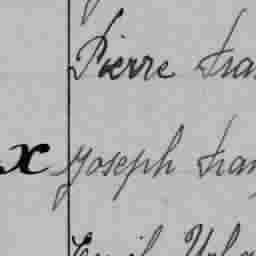 Pierre Fran
x Joseph Fran
Emil Urba